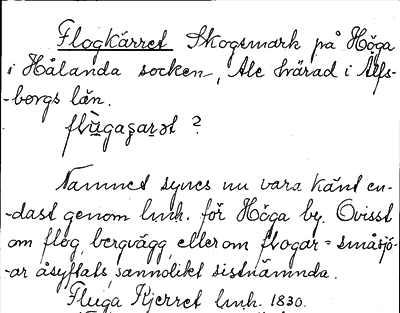 Flogkärret Skogsmark på Höga
i Hålanda socken, Ale härad i Älfs-
-borgs län.
flùgaʂaɽət ?
Namnet synes nu vara känt en-
-dast genom lmk. för Höga by. Ovisst
om flog, bergvägg, eller om flogar = småsjö-
-ar åsyftats, sannolikt sistnämnda.
Fluga Kjerret lmk. 1830.